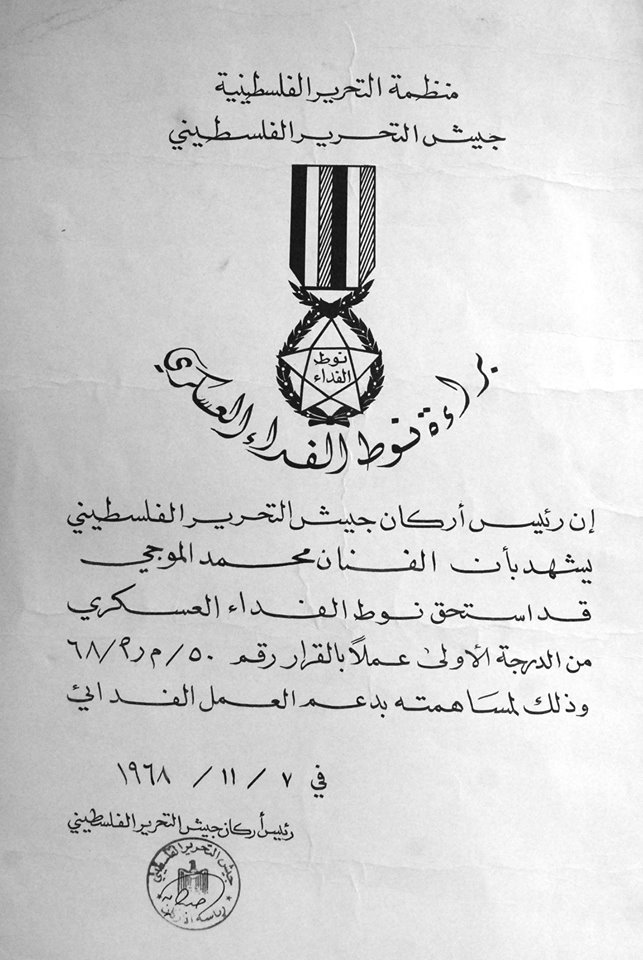 منظمة التحرير الفلسطينية
جيش التحرير الفلسطيني
نوط
الفداء
براءة نوط الفداء العسكري
إن رئيس أركان جيش التحرير الفلسطيني
يشهد بأن الفنان محمد الموجي
قد استحق نوط الفداء العسكري
من الدرجة الأولى عملاً بالقرار رقم ٥٠/م ر٩/٦٨
وذلك لمساهمته بدعم العمل الفدائي
في ٧ / ١١ / ١٩٦٨
رئيس أركان جيش التحرير الفلسطيني
جيش التحرير الفلسطيني